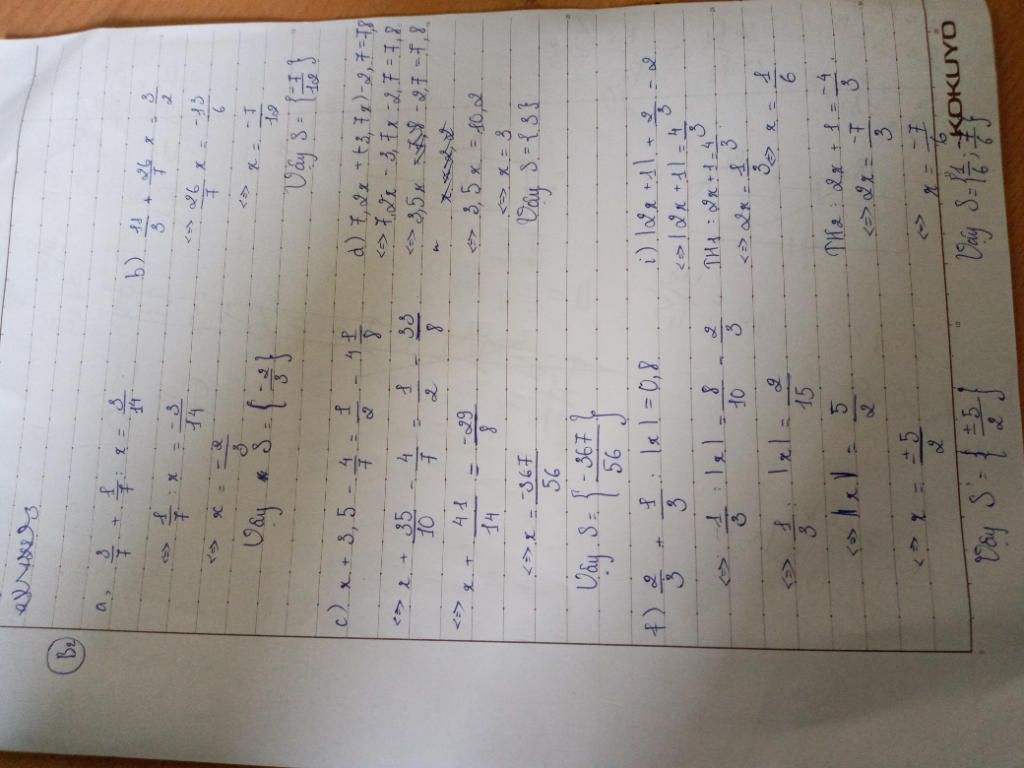 B2
a, 3/7 + 1/7 : x = 3/14
<=> 1/7 : x = -3/14
<=> x = -2/3
Vậy S = {-2/3}
b) 11/3 + 26/7 x = 3/2
<=> 26/7 x = -13/6
<=> x = -7/12
Vậy S = {-7/12}
c) x + 3,5 - 4/7 = 1/2 - 4 1/8
<=> x + 35/10 - 4/7 = 1/2 - 33/8
<=> x + 41/14 = -29/8
<=> x = -367/56
Vậy S = {-367/56}
d) 7,2x + (-3,7x) - 2,7 = 7,8
<=> 7,2x - 3,7x - 2,7 = 7,8
<=> 3,5x - 2,7 = 7,8
<=> 3,5x = 10,2
<=> x = 3
Vậy S = {3}
f) 2/3 + 1/3 : |x| = 0,8
<=> 1/3 : |x| = 8/10 - 2/3
<=> 1/3 : |x| = 2/15
<=> |x| = 5/2
<=> x = ±5/2
Vậy S = {±5/2}
i) |2x+1| + 2/3 = 2
<=> |2x+1| = 4/3
TH1 : 2x + 1 = 4/3
<=> 2x = 1/3
<=> x = 1/6
TH2 : 2x + 1 = -4/3
<=> 2x = -7/3
<=> x = -7/6
Vậy S = {1/6; -7/6}
KOKUYO